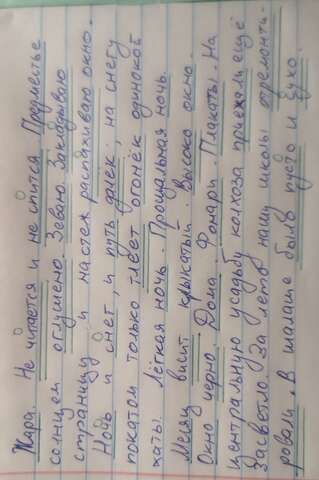 Жара. Не читается и не спится. Предместье
солнцем оглушено. Зеваю. Закладываю
страницу и настеж распахиваю окно.
Ночь и снег, и путь далек; на снегу
покатом только тлеет огонёк одинокой
хаты. Лёгкая ночь. Прощальная ночь.
Месяц висит клыкатый. Высоко окно.
Окно черно. Дома. Фонари. Плакаты. На
центральную усадьбу колхоза приехали ещё
засветло. За лето нашу школы отремонти-
ровали. В шалаше было пусто и сухо.